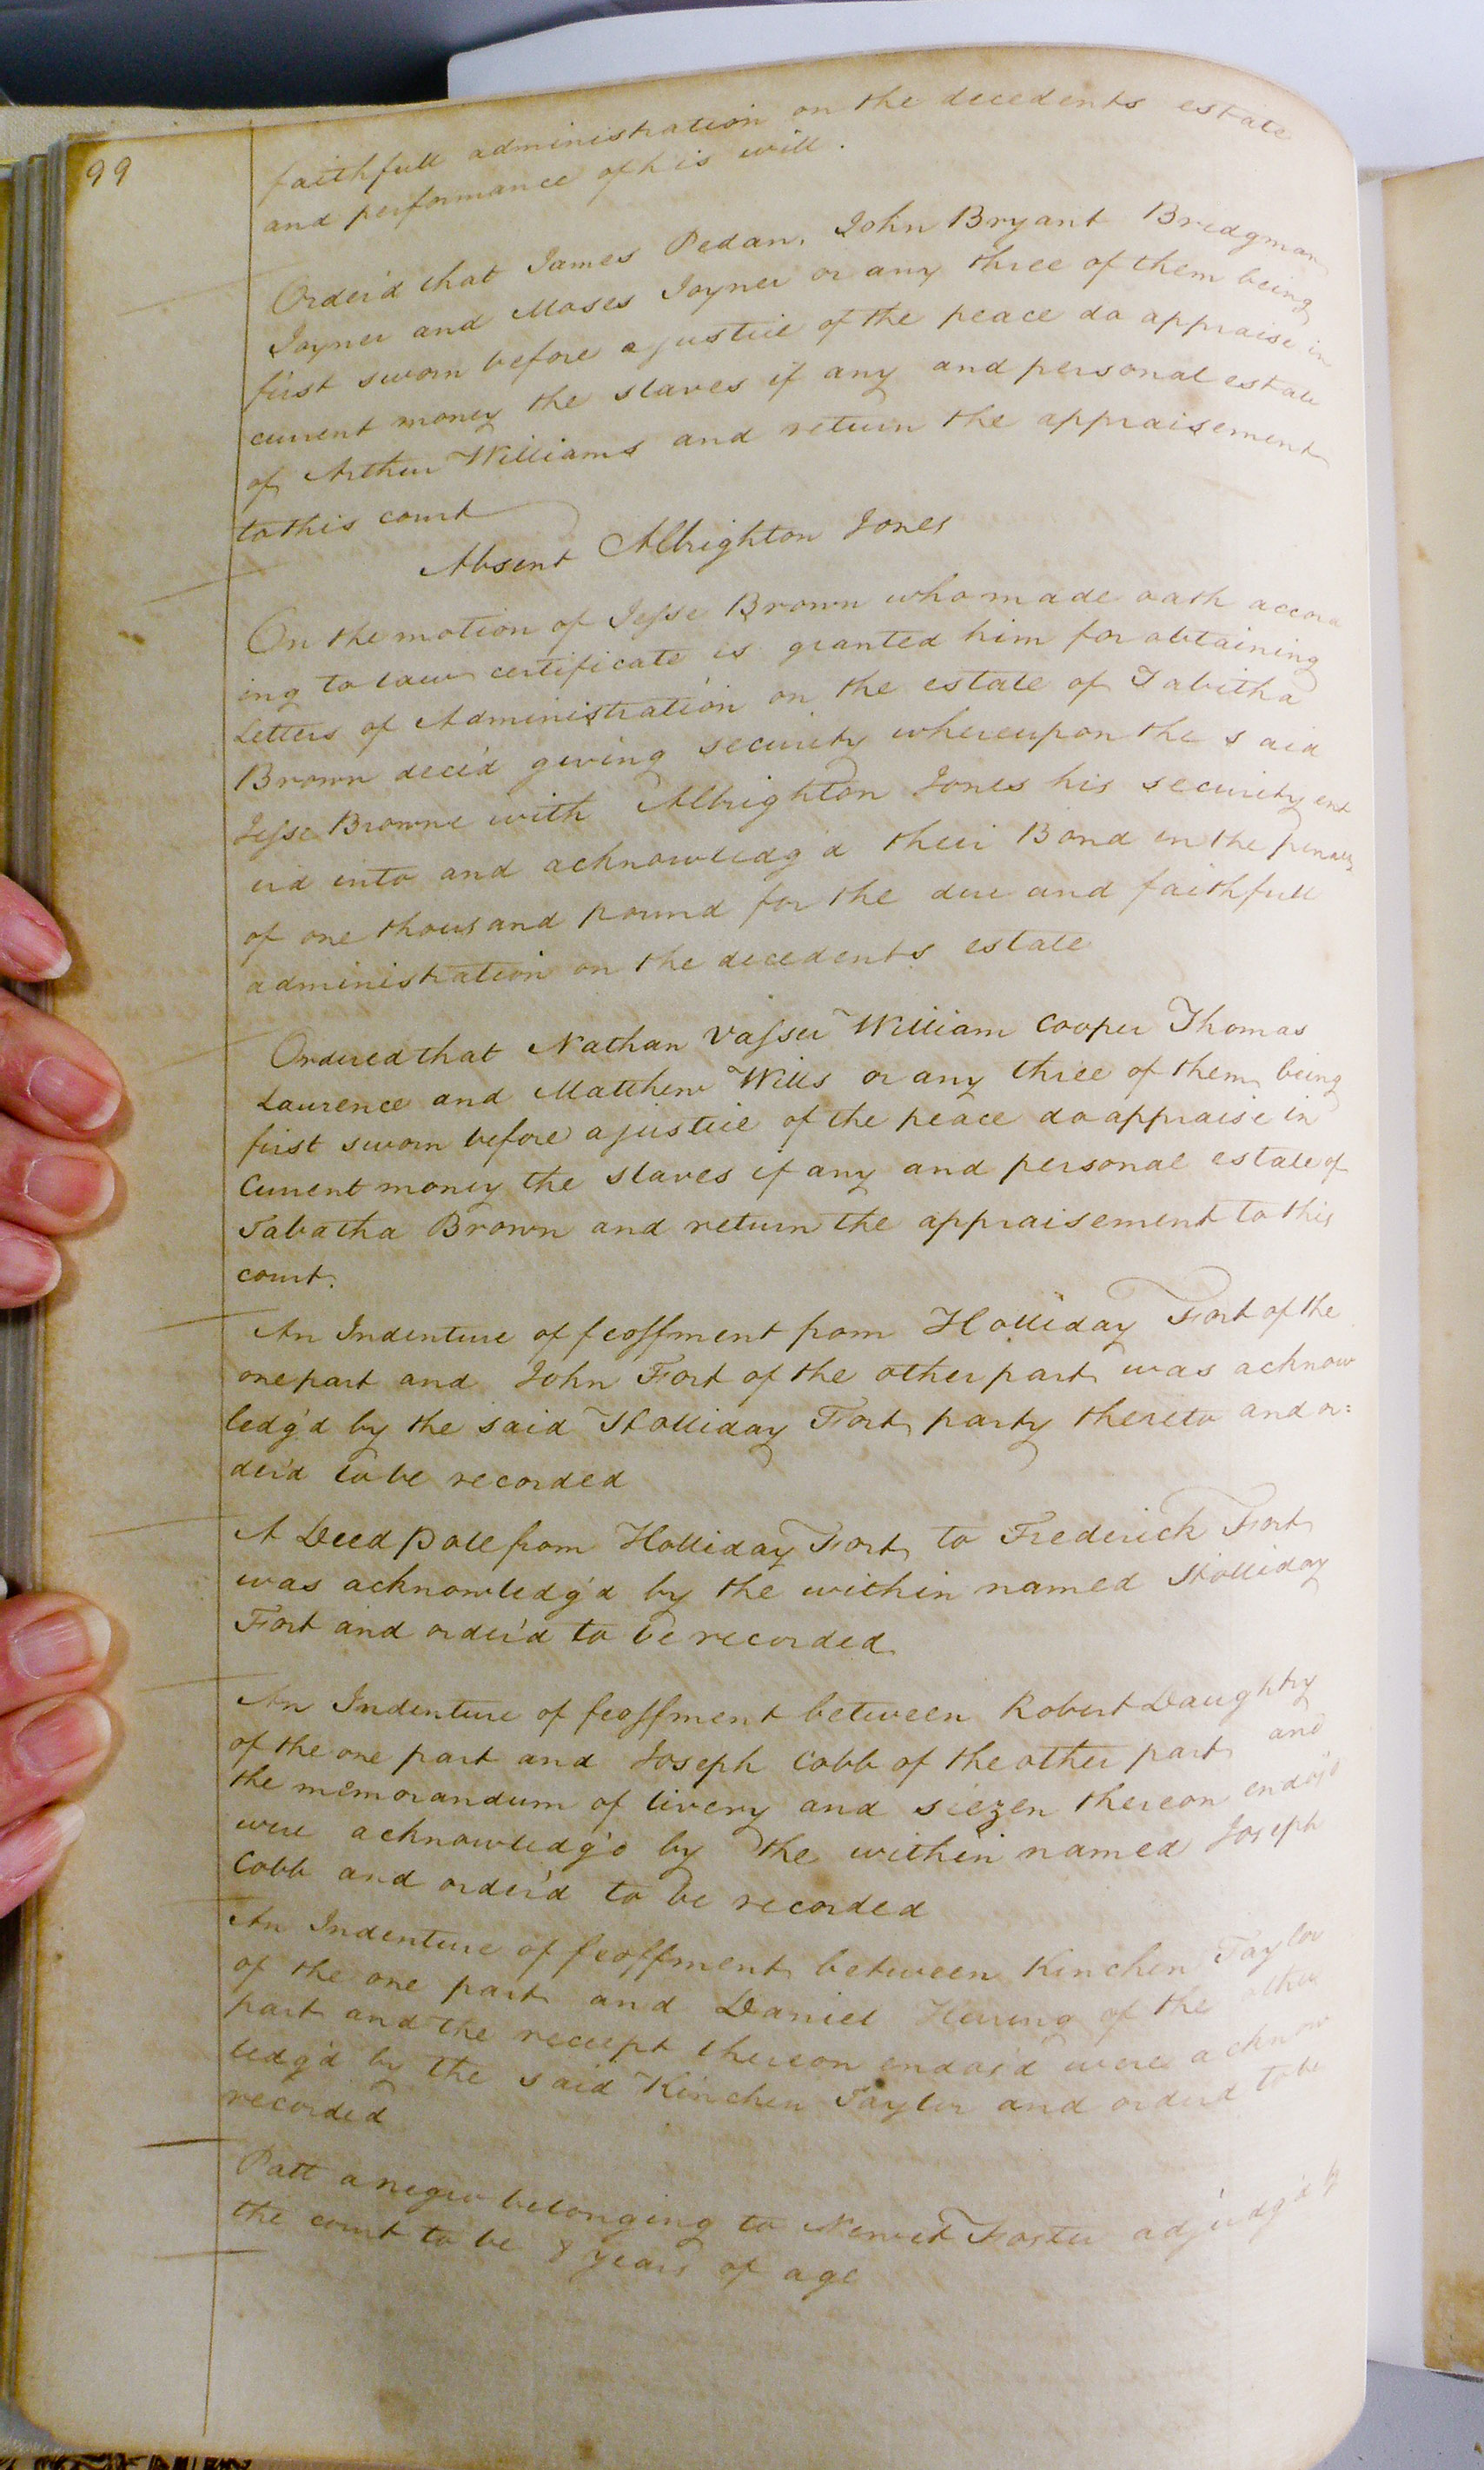 99
faithfull administration on the decedents estate
and performance of his will.
Order'd that James Pedan, John Bryant Bridgman
Joyner and Moses Joyner or any three of them being
first sworn before a justice of the peace do appraise in
current money the slaves if any and personal estate
of Arthur Williams and return the appraisement
to this court
Absent Albrighton Jones
On the motion of Jesse Brown who made oath accord
ing to law certificate is granted him for obtaining
Letters of Administration on the estate of Tabitha
Brown dece'd giving security whereupon the said
Jesse Browne with Albrighton Jones his security ent
er'd into and acknowledg'd their Bond in the penalty
of one thousand pound for the due and faithfull
administration on the decedents estate
Ordered that Nathan Vasser William Cooper Thomas
Laurence and Matthew Wills or any three of them being
first sworn before a justice of the peace do appraise in
Current money the slaves if any and personal estate of
Tabatha Brown and return the appraisement to this
court.
An Indenture of feoffment from Holliday Fort of the
one part and John Fort of the other part was acknow
ledg'd by the said Holliday Fort party thereto and or:
der'd to be recorded
A Deed Pole from Holliday Fort to Frederick Fort
was acknowledg'd by the within named Holliday
Fort and order'd to be recorded
An Indenture of feoffment between Robert Daughtry
of the one part and Joseph Cobb of the other part and
the memorandum of livery and siezen thereon endos'd
were acknowledg'd by the within named Joseph
Cobb and order'd to be recorded
An Indenture of feoffment between Kinchen Taylor
of the one part and Daniel Herring of the other
part and the receipt thereon endos'd were acknow
ledg'd by the said Kinchen Taylor and orderd to be
recorded
Patt a negro belonging to Foster adjudg'd by
the court to be 8 years of age